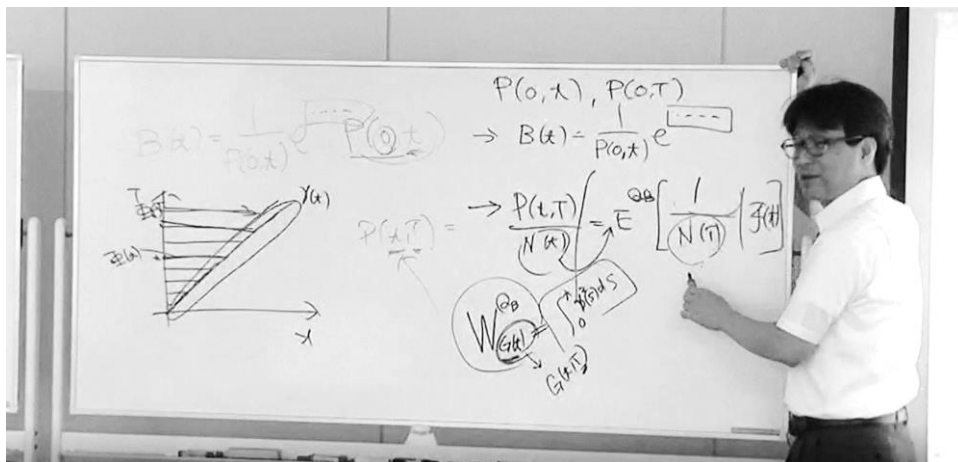 P(0,t), P(0,T)
B(t) = 1/P(0,t) e^[----] P(0,t)
→ B(t) = 1/P(0,t) e^[----]
T
γ(t)
x
P(t,T) =
→ P(t,T)/N(t) = E^{QB}[1/N(T) | F(t)]
W^{QB}_{G(t)} = ∫_0^t
ds
G(t,T)